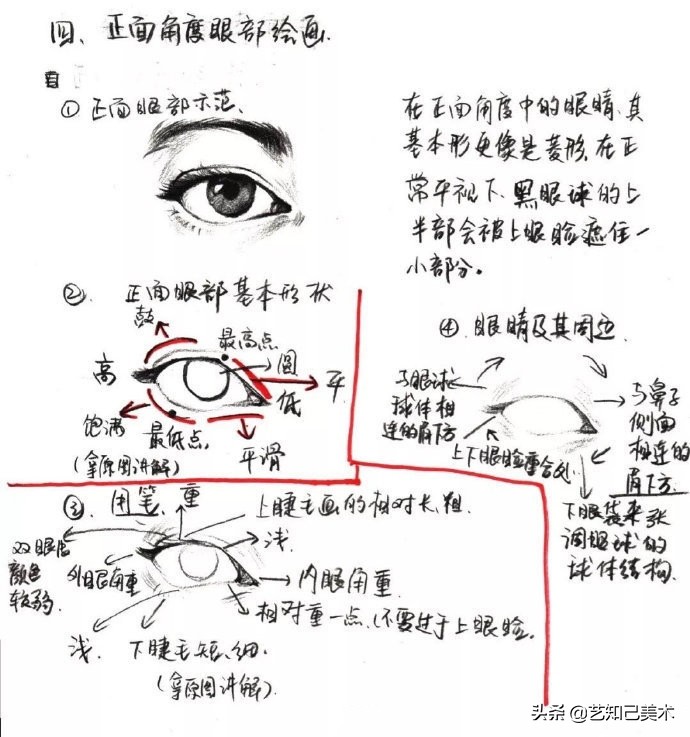 四、正面角度眼部绘画.
①正面眼部示范.
在正面角度中的眼睛.其
基本形更像是菱形.在正
常平视下、黑眼球的上
半部会被上眼睑遮住一
小部分。
②. 正面眼部基本形状
鼓
最高点
圆
高
平
低
饱满
最低点.
平滑
(拿原图讲解)
④.眼睛及其周边.
与眼球
球体相
连的眉下方
上下眼睑重合处.
与鼻子
侧面
相连的
眉下方.
下眼袋来强
调眼球的
球体结构.
③.用笔.
重
上睫毛画的相对长.粗.
浅.
双眼皮
颜色
较弱.
外眼角重
内眼角重
相对重一点.(不要过于上眼睑.
浅.
下睫毛短、细.
(拿原图讲解).
头条 @艺知己美术